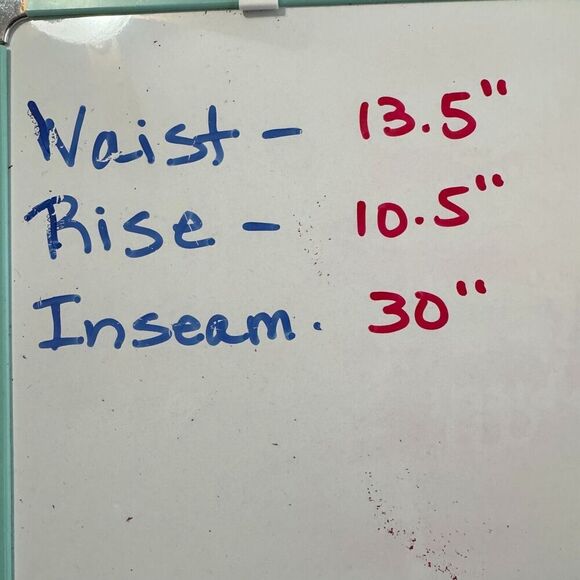 Waist - 13.5"
Rise - 10.5"
Inseam. 30"